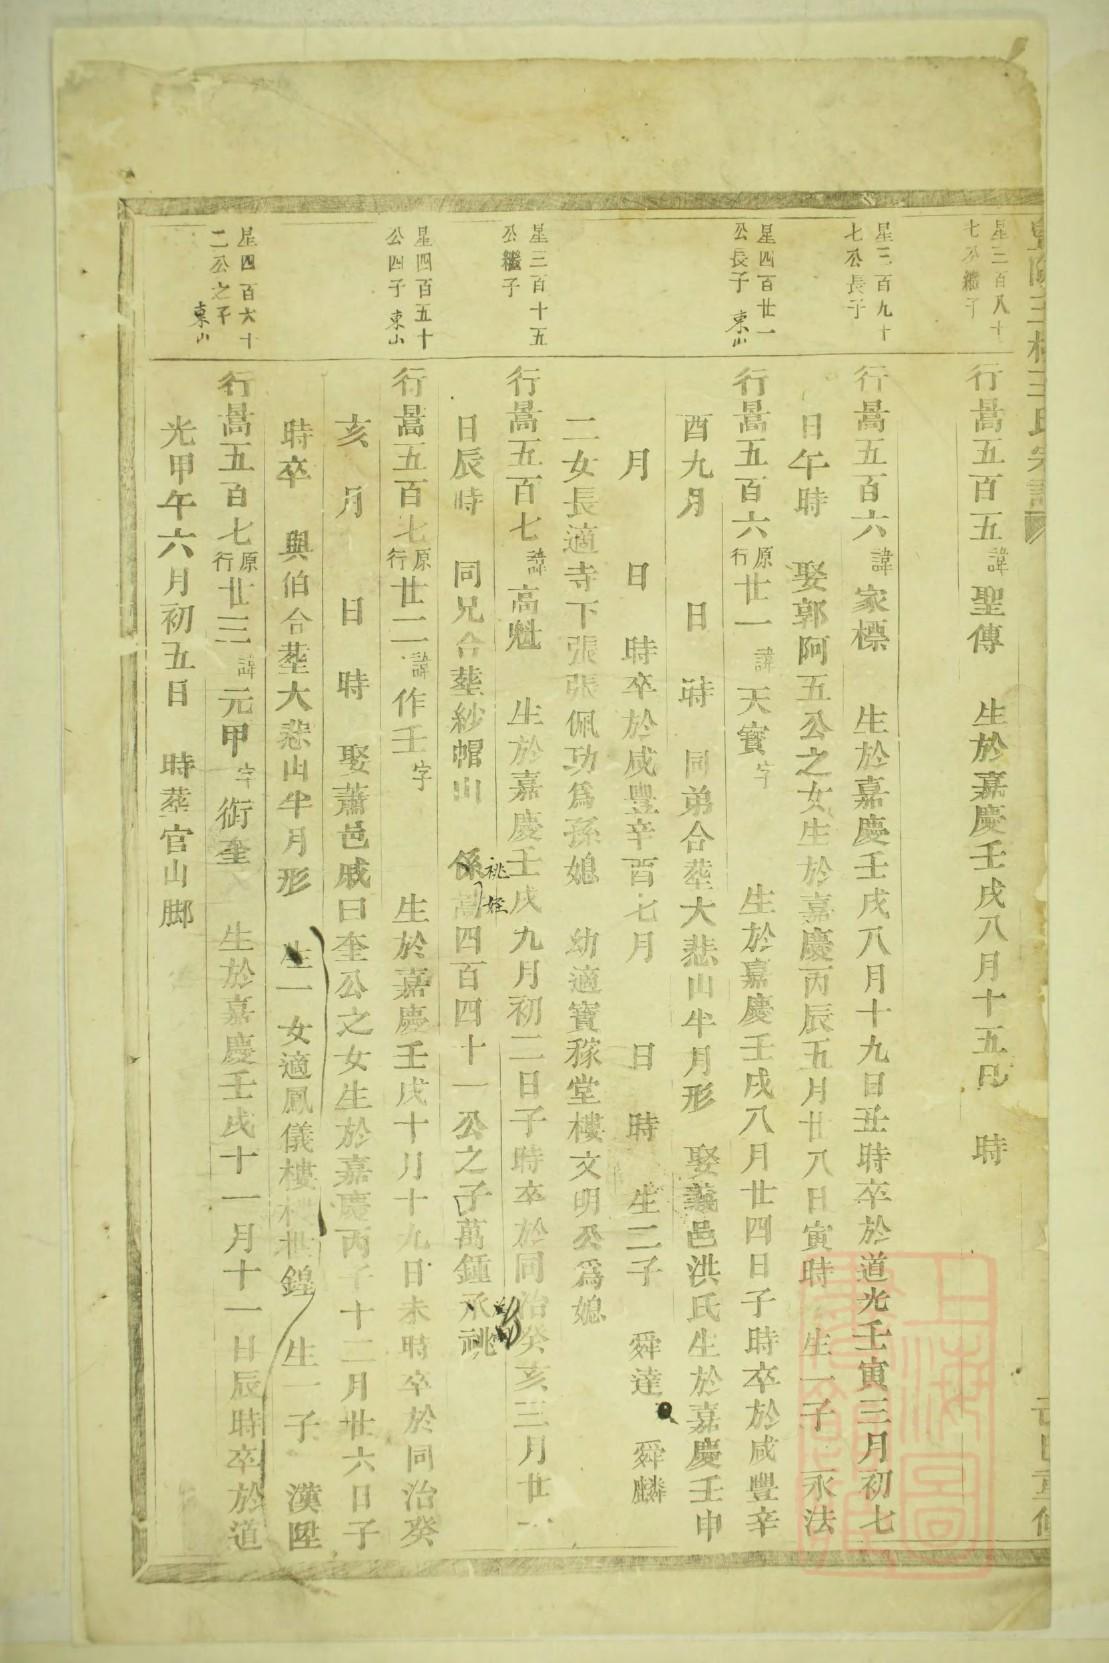 星三百八十
七公繼子
行暠五百五諱聖傳 生於嘉慶壬戌八月十五日 時
星三百九十
七公長子
行暠五百六諱家標 生於嘉慶壬戌八月十九日丑時卒於道光壬寅三月初七
日午時 娶郭阿五公之女生於嘉慶丙辰五月廿八日寅時 生一子 永法
星四百廿一
公長子 東山
行暠五百六原行廿一諱天寳字 生於嘉慶壬戌八月廿四日子時卒於咸豐辛
酉九月 日 時 同弟合塟大悲山半月形 娶義邑洪氏生於嘉慶壬申
月 日 時卒於咸豐辛酉七月 日 時 生二子 舜達 舜麟
二女長適寺下張張佩功爲孫媳 幼適寳稼堂樓文明公爲媳
星三百十五
公繼子
行暠五百七諱高魁 生於嘉慶壬戌九月初二日子時卒於同治癸亥三月廿一
日辰時 同兄合塟紗帽山 係暠四百四十一公之子萬鍾承祧
祧姪
星四百五十
公四子 東山
行暠五百七原行廿二諱作壬字 生於嘉慶壬戌十月十九日未時卒於同治癸
亥 月 日 時 娶蕭邑戚曰奎公之女生於嘉慶丙子十二月廿六日子
時卒 與伯合塟大悲山半月形 生一女適鳳儀樓 世鍠 生一子 漢陞
星四百六十
二公之子 東山
行暠五百七原行廿三諱元甲字銜奎 生於嘉慶壬戌十一月十一日辰時卒於道
光甲午六月初五日 時塟官山脚
上海圖書館藏